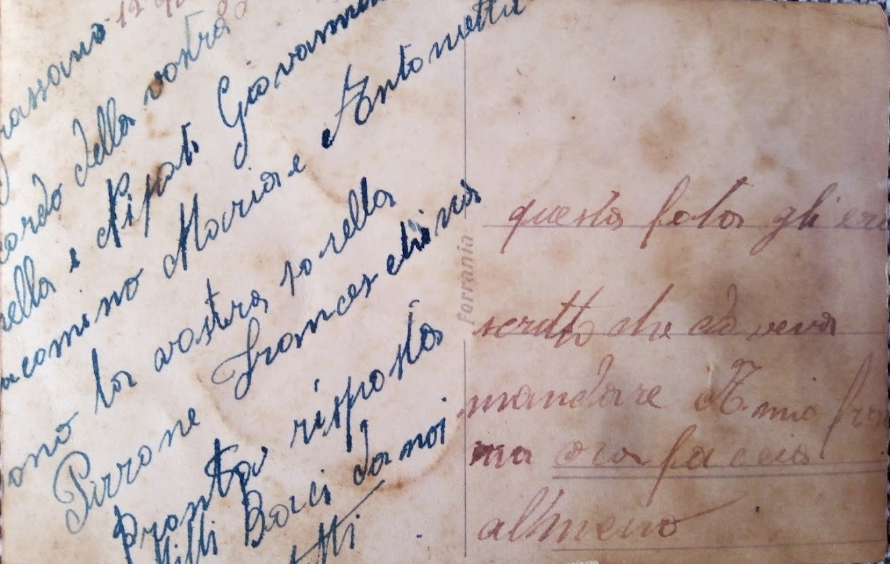 rassano 19
cordo della vostra
rella e Nipoti Giovanna
acomino Maria e Antonietta
ono la vostra sorella
Pirrone Franceschina
Pronta risposta
Milli Baci da noi
tutti
Ferrania
questa foto gli ero
scritto che doveva
mandare A mio fra
ma ora faccia
almeno